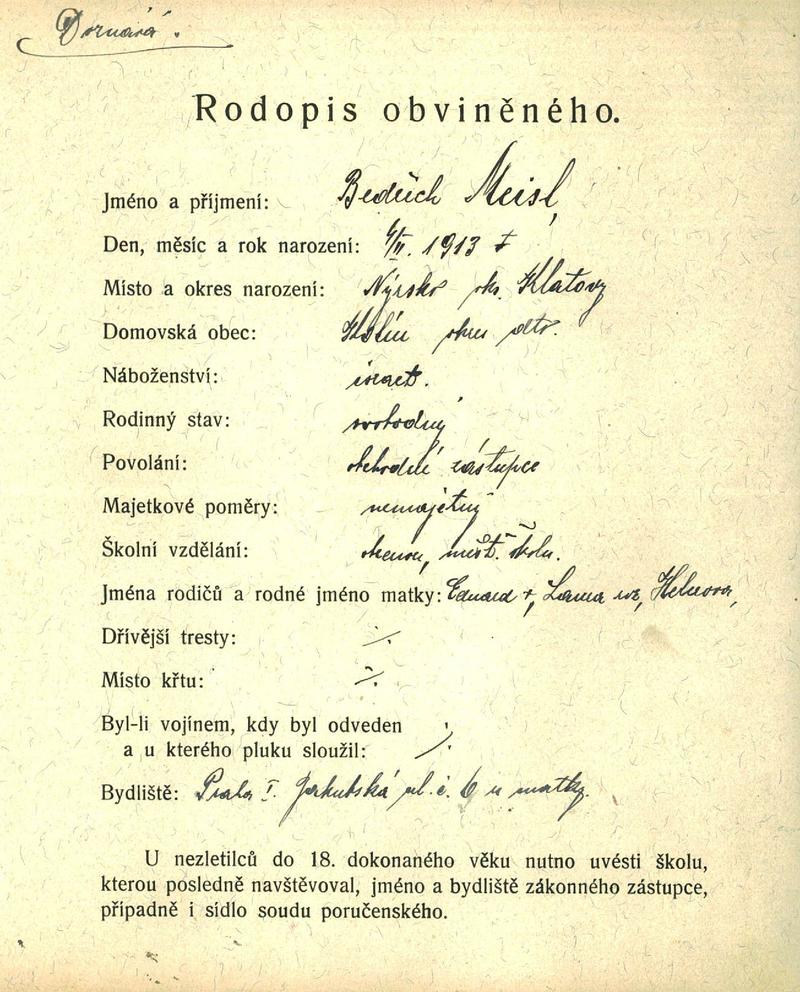 Rodopis obviněného.
Jméno a příjmení: Bedřich Meisl,
Den, měsíc a rok narození: 1913
Místo a okres narození: Nýrsko okr. Klatovy
Domovská obec: Kolín okres dto.
Náboženství: israel.
Rodinný stav: svobodný
Povolání: obchodní zástupce
Majetkové poměry: nemajetný
Školní vzdělání: obecnou, měšť. školu.
Jména rodičů a rodné jméno matky: Eduard +,
Dřívější tresty: ·/.
Místo křtu: ·/.
Byl-li vojínem, kdy byl odveden
a u kterého pluku sloužil: ·/.
Bydliště: Praha I. Jakubská ul. č. 6 u matky.
U nezletilců do 18. dokonaného věku nutno uvésti školu,
kterou posledně navštěvoval, jméno a bydliště zákonného zástupce,
případně i sídlo soudu poručenského.